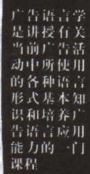 广告语言学
是讲授有关
当前广告活
动中所使用
的各种语言
形式基本知
识和培养广
告语言应用
能力的一门
课程